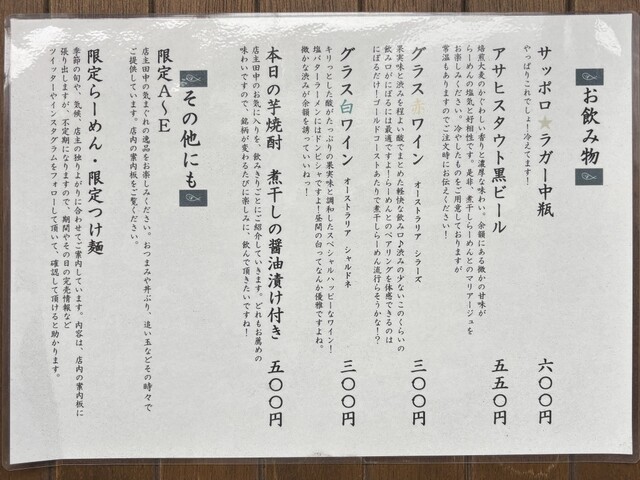 お飲み物
サッポロ★ラガー中瓶 六〇〇円
やっぱりこれでしょ！冷えてます！
アサヒスタウト黒ビール 五五〇円
焙煎大麦のかぐわしい香りと濃厚な味わい。余韻にある微かの甘味が
らーめんの塩気と好相性です。是非、煮干しらーめんとのマリアージュを
お楽しみください。冷やしたものをご用意しておりますが
常温もありますのでご注文時にお伝えください！
グラス赤ワイン オーストラリア シラーズ 三〇〇円
果実味と渋みを程よい酸でまとめた軽快な飲み口♪渋みの少ないこのくらいの
飲み口がにぼるには最適ですよ！らーめんとのペアリングを体感できるのは
にぼるだけ！ゴールドコーストあたりで煮干しらーめん流行らそうかな！？
グラス白ワイン オーストラリア シャルドネ 三〇〇円
キリっとした酸がたっぷりの果実味と調和したスペシャルハッピーなワイン！
塩バターラーメンにはドンピシャですよ！昼間の白ってなんか優雅ですよね。
微かな渋みが余韻を誘っていいねっ！
本日の芋焼酎 煮干しの醤油漬け付き 五〇〇円
店主田中のお気に入りを、飲みきりごとにご紹介していきます。どれもお薦めの
味わいですので、銘柄が変わるたびに楽しみに、飲んで頂きたいですね！
その他にも
限定A～E
店主田中の気まぐれの逸品をお楽しみください。おつまみや丼ぶり、追い玉などその時々で
ご提供しています。店内の案内板をご覧ください。
限定らーめん・限定つけ麺
季節の旬や、気候、店主の独りよがりに合わせてご案内しています。内容は、店内の案内板に
張り出しますが、不定期になりますので、期間やその日の完売情報など
ツイッターやインスタグラムをフォローして頂いて、確認して頂けると助かります。